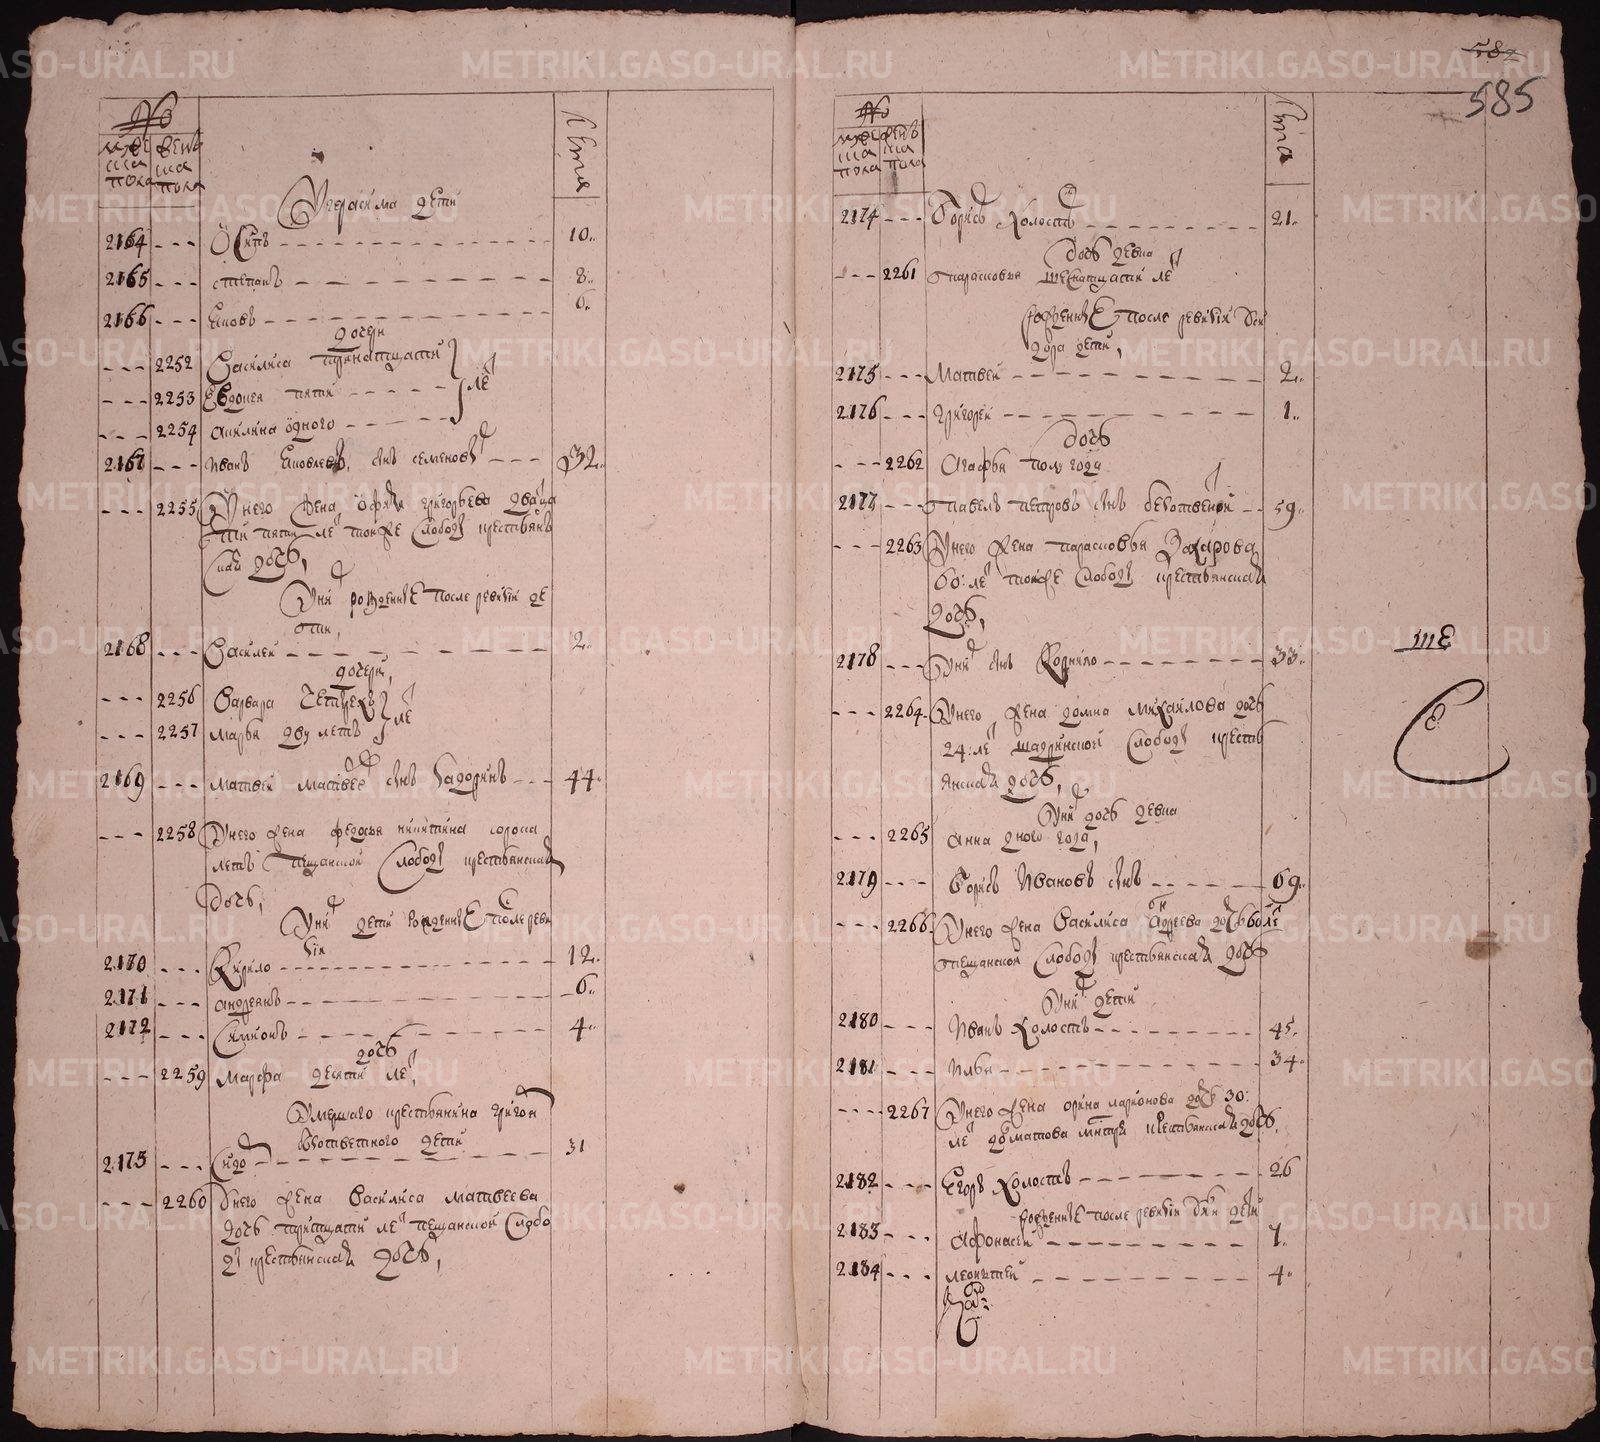 №
муже ска пола
женъ ска пола
Лета
У герасима дети
2164 --- Осипъ --- 10
2165 --- степанъ --- 8
2166 --- Яковъ --- 6
дочери
--- 2252 Василиса тринатцати
--- 2253 Евдокея пяти --- ле
--- 2254 акилина одного
2167 --- иванъ Яковлевъ снъ семеновъ --- 32
--- 2255 У него жена Офи григорьева дватца
ти пяти ле тоя же слободы крестьянъ
ская дочь
У них рожденные после ревизiи де
ти
2168 --- Василеи --- 2
дочери
--- 2256 Варвара четырехъ
--- 2257 марья дву летъ ле
2169 --- матвеи матвеев снъ Бадоринъ --- 44
--- 2258 У него жена федосья никитина сорока
летъ пещанскои слободы крестьянская
дочь
У них дети рожденные после реви
зiи
2170 --- Кирило --- 12
2171 --- андреянъ --- 6
2172 --- Симионъ --- 4
дочь
--- 2259 Марфа десяти ле
Умершаго крестьянина григор
дети
2173 --- Сидо --- 31
--- 2260 У него жена Василиса матвеева
дочь тритцати ле пещанскои слобо
ды крестьянская дочь
582
585
№
муже ска пола
женъ ска пола
Лета
2174 --- Борисъ холостъ --- 21
дочь девка
--- 2261 парасковья шеснатцати ле
рожденные после ревизiи
дора дети
2175 --- Матвеи --- 2
2176 --- григореи --- 1
дочь
--- 2262 Агафья полу года
2177 --- павелъ петровъ снъ --- 59
--- 2263 У него жена парасковья Захарова
60: ле тоя же слободы крестьянская
дочь
2178 --- У них снъ Корнило --- 33
--- 2264 У него жена домна михаилова дочь
24: ле шадринскои слободы кресть
янская дочь
У них дочь девка
--- 2265 анна дного года
2179 --- Борисъ Ивановъ снъ --- 69
--- 2266 У него жена Василиса андреева дочь 60 ле
пещанскои слободы крестьянская дочь
У них дети
2180 --- Иванъ холостъ --- 45
2181 --- Илья --- 34
--- 2267 У него жена орина ларионова дочь 30:
ле далматова мнтря крестьянская дочь
2182 --- Егоръ холостъ --- 26
рожденные после ревизiи дети
2183 --- Афонасеи --- 7
2184 --- леонтеи --- 4